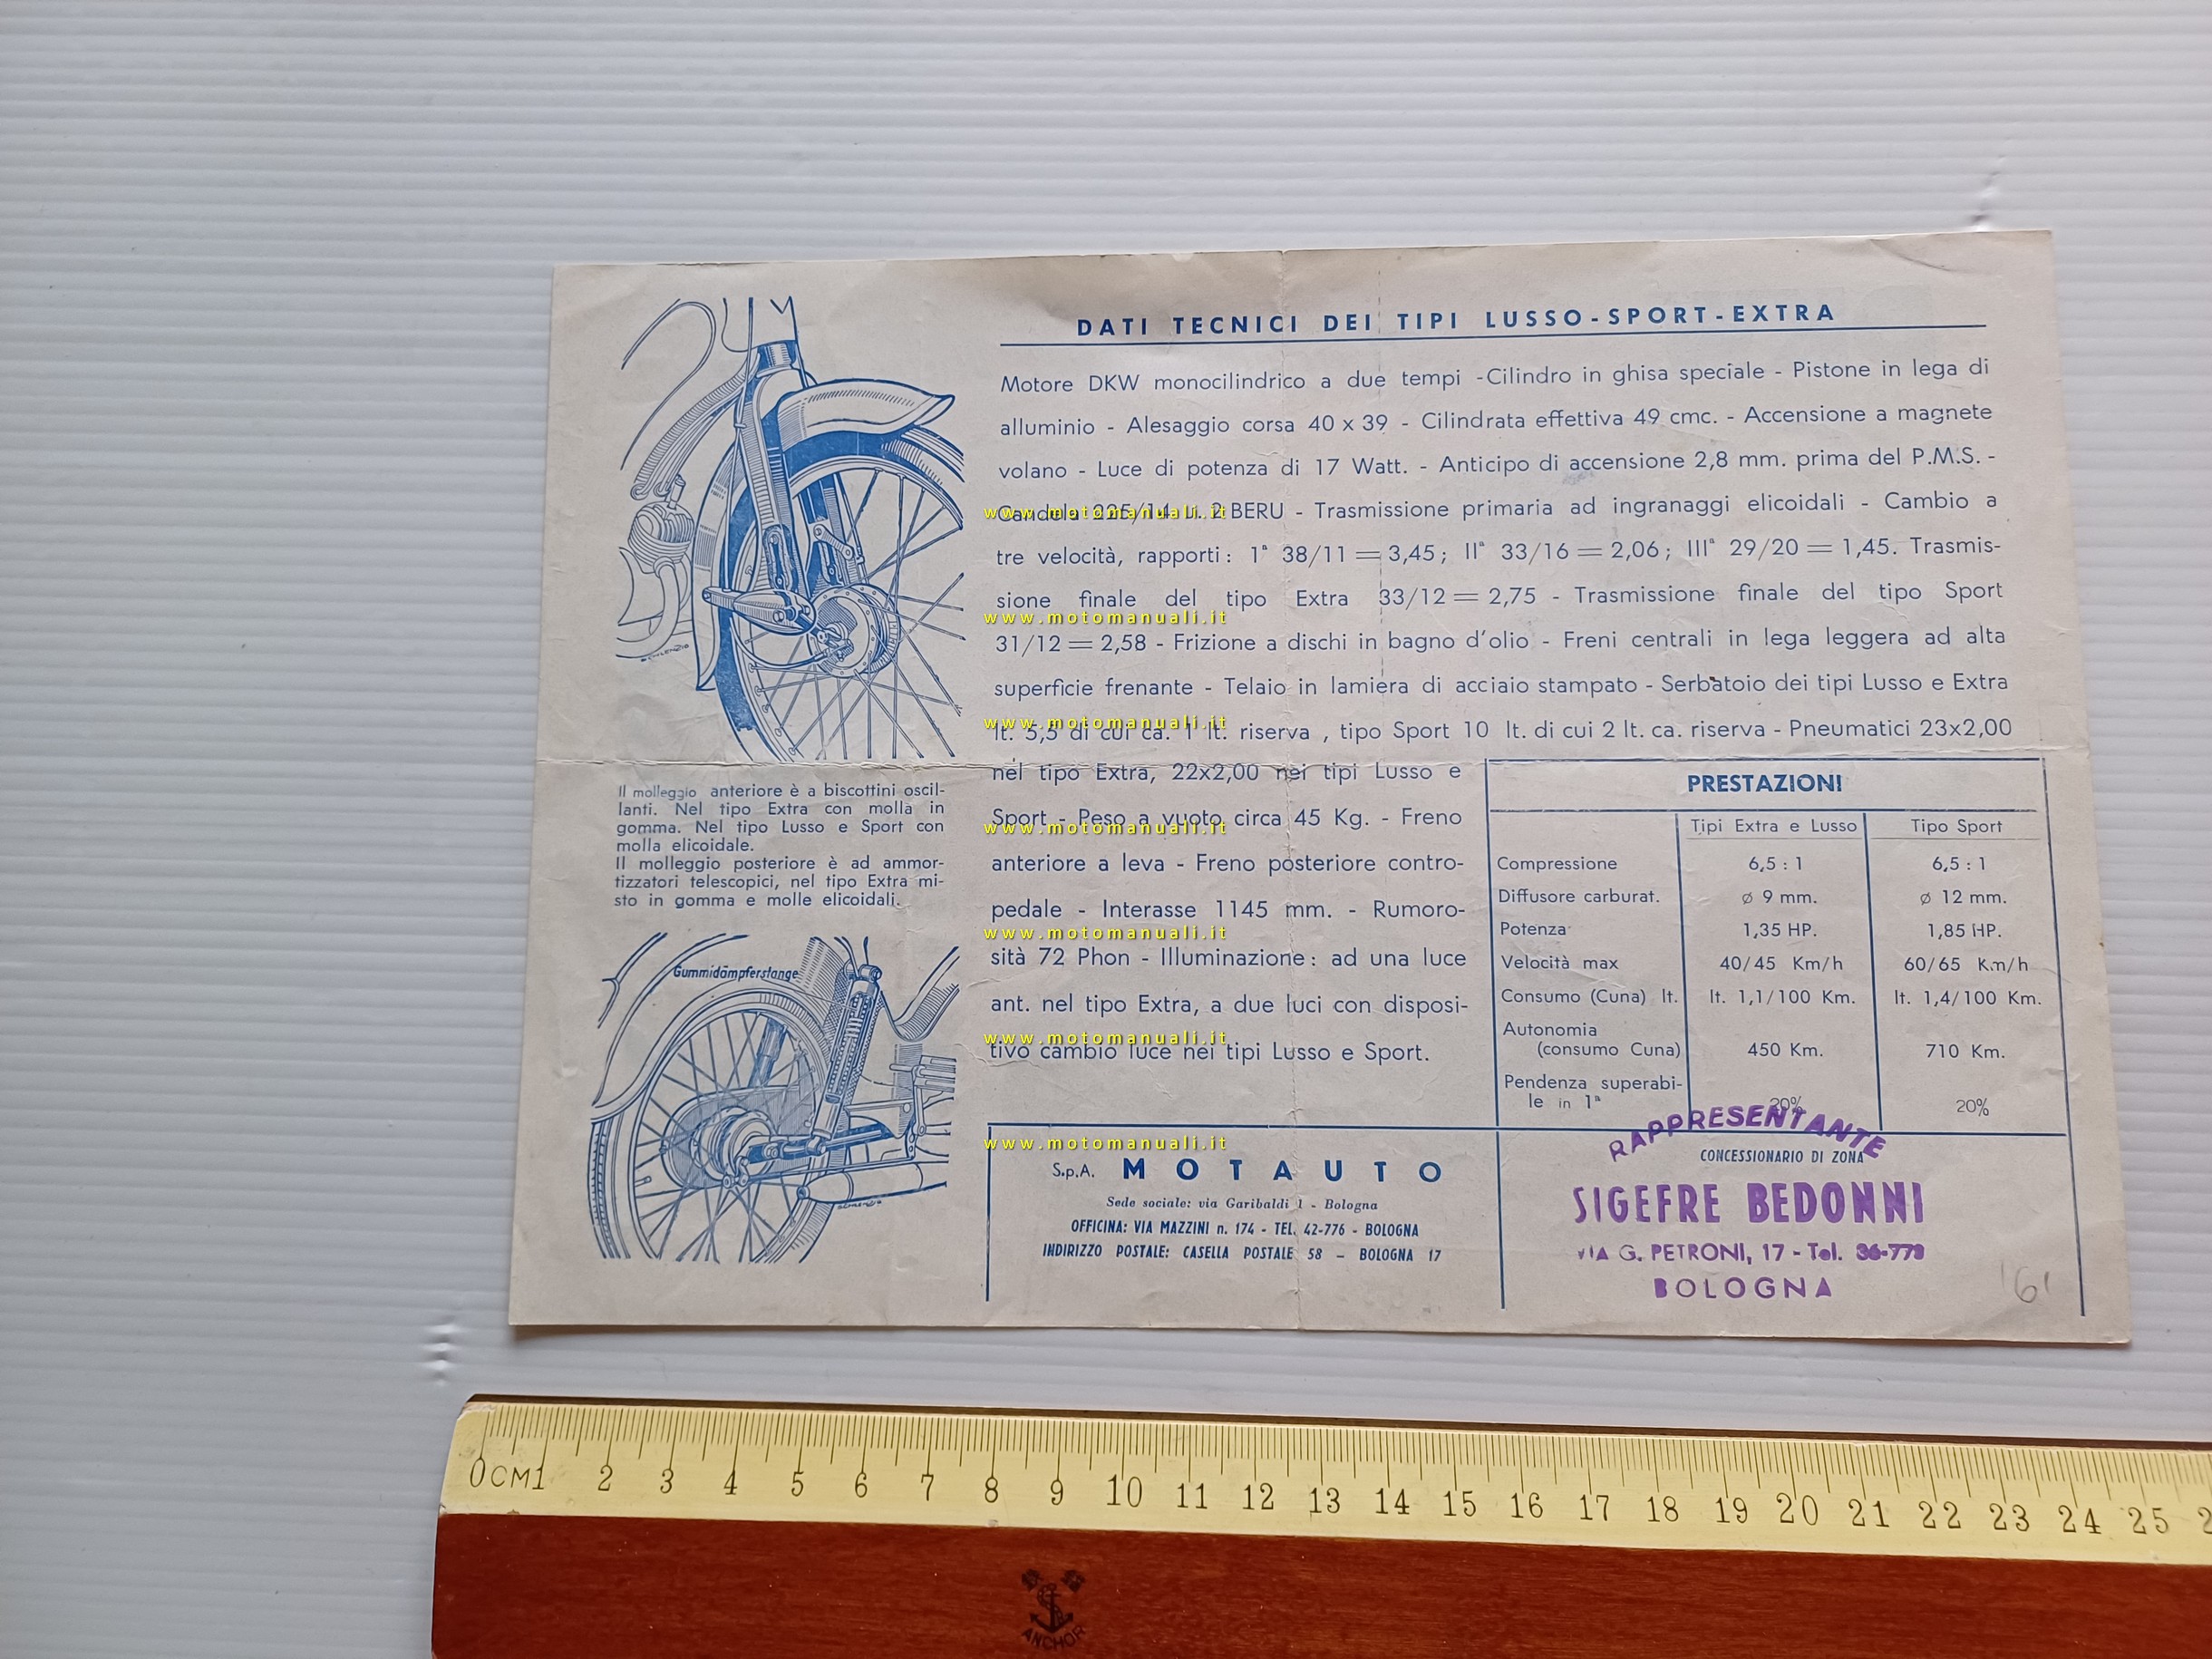 DATI TECNICI DEI TIPI LUSSO-SPORT-EXTRA
Motore DKW monocilindrico a due tempi - Cilindro in ghisa speciale - Pistone in lega di
alluminio - Alesaggio corsa 40 x 39 - Cilindrata effettiva 49 cmc. - Accensione a magnete
volano - Luce di potenza di 17 Watt. - Anticipo di accensione 2,8 mm. prima del P.M.S. -
Candela 225/14 u. 2 BERU - Trasmissione primaria ad ingranaggi elicoidali - Cambio a
www.motomanuali.it
tre velocità, rapporti: 1ª 38/11 = 3,45; IIª 33/16 = 2,06; IIIª 29/20 = 1,45. Trasmis-
sione finale del tipo Extra 33/12 = 2,75 - Trasmissione finale del tipo Sport
www.motomanuali.it
31/12 = 2,58 - Frizione a dischi in bagno d'olio - Freni centrali in lega leggera ad alta
superficie frenante - Telaio in lamiera di acciaio stampato - Serbatoio dei tipi Lusso e Extra
www.motomanuali.it
lt. 5,5 di cui ca. 1 lt. riserva , tipo Sport 10 lt. di cui 2 lt. ca. riserva - Pneumatici 23x2,00
nel tipo Extra, 22x2,00 nei tipi Lusso e
Sport - Peso a vuoto circa 45 Kg. - Freno
www.motomanuali.it
anteriore a leva - Freno posteriore contro-
pedale - Interasse 1145 mm. - Rumoro-
www.motomanuali.it
sità 72 Phon - Illuminazione: ad una luce
ant. nel tipo Extra, a due luci con disposi-
www.motomanuali.it
tivo cambio luce nei tipi Lusso e Sport.
Il molleggio anteriore è a biscottini oscil-
lanti. Nel tipo Extra con molla in
gomma. Nel tipo Lusso e Sport con
molla elicoidale.
Il molleggio posteriore è ad ammor-
tizzatori telescopici, nel tipo Extra mi-
sto in gomma e molle elicoidali.
Gummidämpferstange
PRESTAZIONI
Tipi Extra e Lusso Tipo Sport
Compressione 6,5 : 1 6,5 : 1
Diffusore carburat. ø 9 mm. ø 12 mm.
Potenza 1,35 HP. 1,85 HP.
Velocità max 40/45 Km/h 60/65 Km/h
Consumo (Cuna) lt. lt. 1,1/100 Km. lt. 1,4/100 Km.
Autonomia
(consumo Cuna) 450 Km. 710 Km.
Pendenza superabi-
le in 1ª 20% 20%
www.motomanuali.it
S.p.A. MOTAUTO
Sede sociale: via Garibaldi 1 - Bologna
OFFICINA: VIA MAZZINI n. 174 - TEL. 42-776 - BOLOGNA
INDIRIZZO POSTALE: CASELLA POSTALE 58 - BOLOGNA 17
RAPPRESENTANTE
CONCESSIONARIO DI ZONA
SIGEFRE BEDONNI
VIA G. PETRONI, 17 - Tel. 36-779
BOLOGNA
0 CM 1 2 3 4 5 6 7 8 9 10 11 12 13 14 15 16 17 18 19 20 21 22 23 24 25
ANCHOR